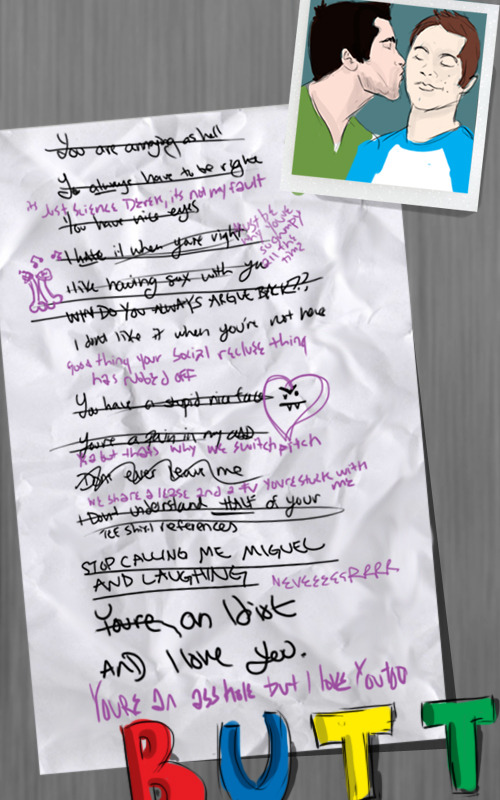 You are annoying as hell
You always have to be right
its Just science DEREK, its not my fault
You have nice eyes
I hate it when you're right
Must be
why you're
so grumpy
all the
time
I like having sex with you
WHY DO YOU ALWAYS ARGUE BACK??
I dont like it when you're not here
Good thing your social recluse thing
has rubbed off
You have a stupid nice face
You're a pain in my ass
Ha but thats why we switch pitch
Dont ever leave me
WE share a lease and a TV youre stuck with
me
I Dont understand HALF of your
TEE shirt references
STOP CALLING ME MIGUEL
AND LAUGHING
NEVEEEERRRR
You're an Idiot
AND I love you.
YOURE an asshole but I love You too
BUTT